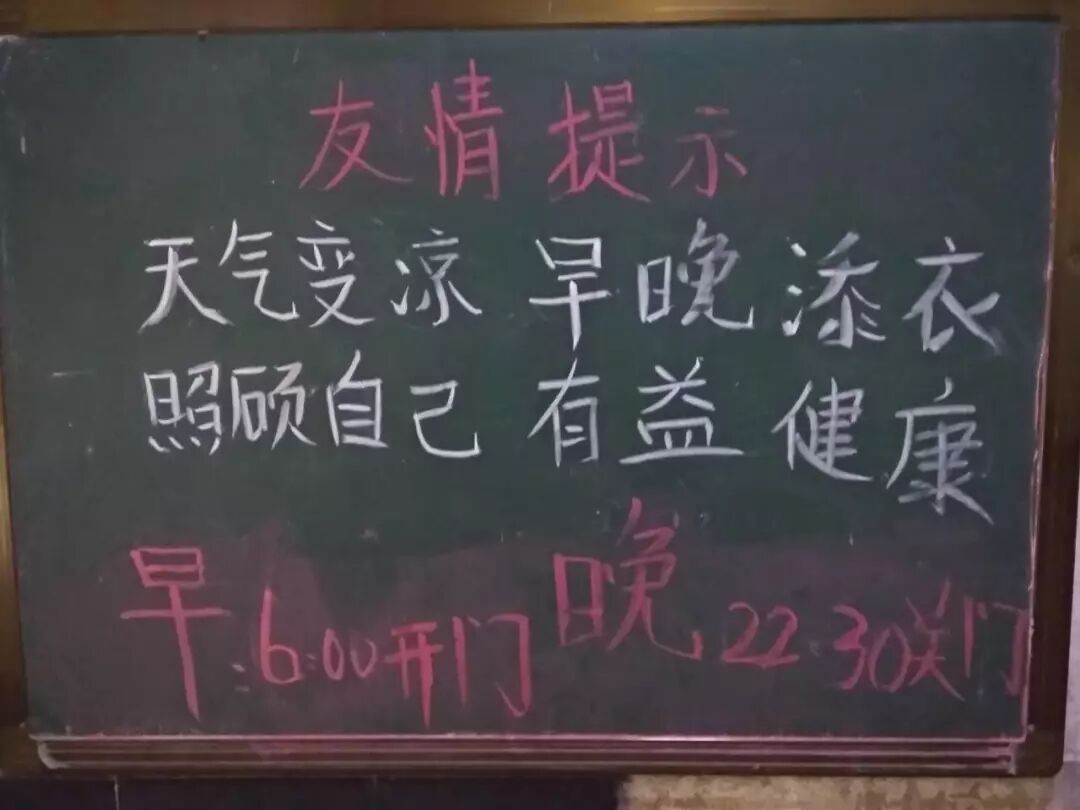 友情提示
天气变凉 早晚添衣
照顾自己 有益健康
早:6:00开门 晚22:30关门